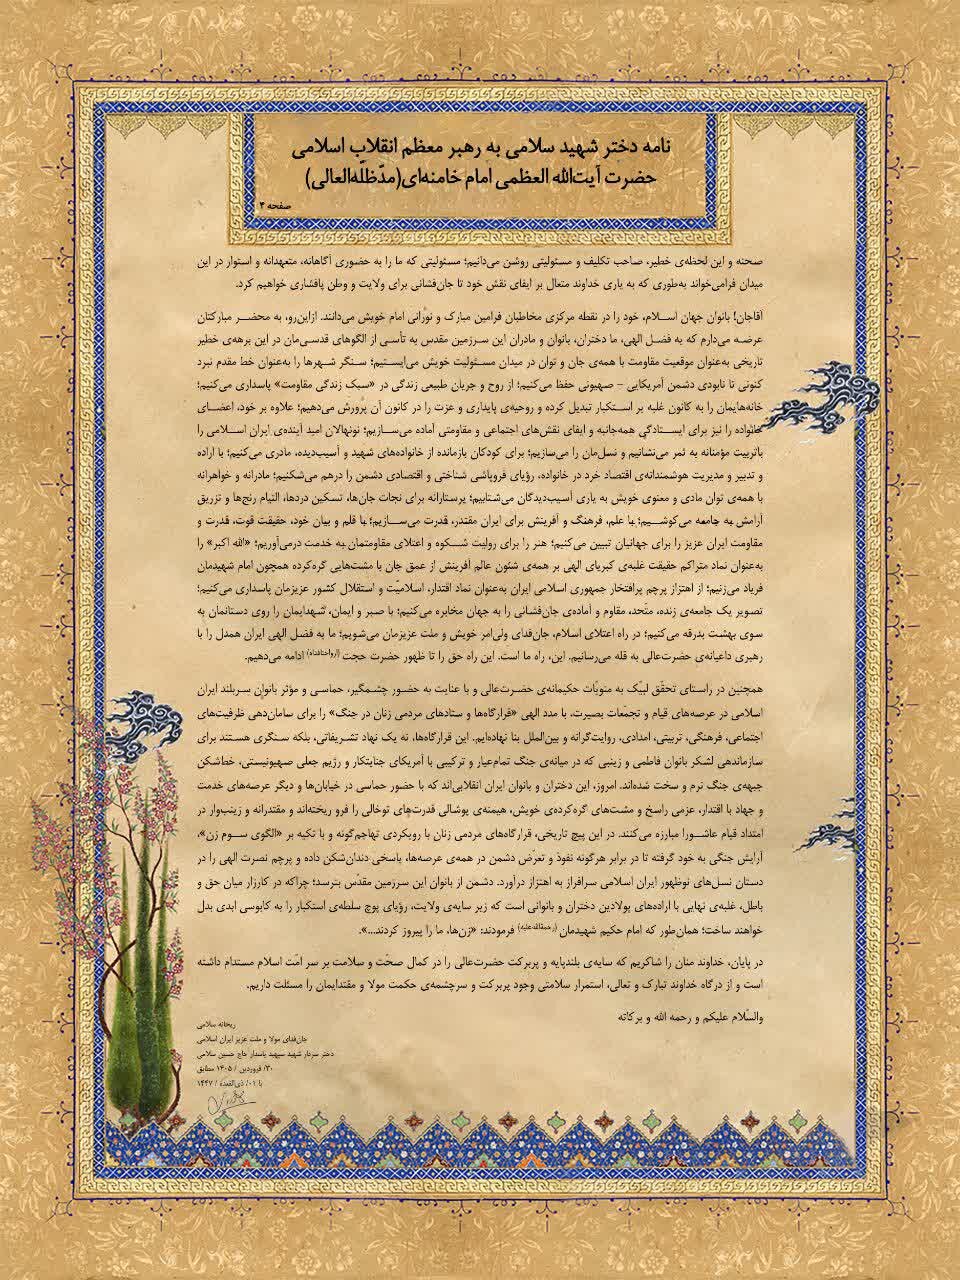 نامه دختر شهید سلامی به رهبر معظم انقلاب اسلامی
حضرت آیت‌الله العظمی امام خامنه‌ای(مدّظلّه‌العالی)
صفحه ۴
صحنه و این لحظه‌ی خطیر، صاحب تکلیف و مسئولیتی روشن می‌دانیم؛ مسئولیتی که ما را به حضوری آگاهانه، متعهدانه و استوار در این
میدان فرامی‌خواند به‌طوری که به یاری خداوند متعال بر ایفای نقش خود تا جان‌فشانی برای ولایت و وطن پافشاری خواهیم کرد.
آقاجان! بانوان جهان اسلام، خود را در نقطه مرکزی مخاطبان فرامین مبارک و نورانی امام خویش می‌دانند. ازاین‌رو، به محضر مبارکتان
عرضه می‌دارم که به فضل الهی، ما دختران، بانوان و مادران این سرزمین مقدس به تأسی از الگوهای قدسی‌مان در این برهه‌ی خطیر
تاریخی به‌عنوان موقعیت مقاومت با همه‌ی جان و توان در میدان مسئولیت خویش می‌ایستیم؛ سنگر شهرها را به‌عنوان خط مقدم نبرد
کنونی تا نابودی دشمن آمریکایی - صهیونی حفظ می‌کنیم؛ از روح و جریان طبیعی زندگی در «سبک زندگی مقاومت» پاسداری می‌کنیم؛
خانه‌هایمان را به کانون غلبه بر استکبار تبدیل کرده و روحیه‌ی پایداری و عزت را در کانون آن پرورش می‌دهیم؛ علاوه بر خود، اعضای
خانواده را نیز برای ایستادگی همه‌جانبه و ایفای نقش‌های اجتماعی و مقاومتی آماده می‌سازیم؛ نونهالان امید آینده‌ی ایران اسلامی را
باتربیت مؤمنانه به ثمر می‌نشانیم و نسل‌مان را می‌سازیم؛ برای کودکان بازمانده از خانواده‌های شهید و آسیب‌دیده، مادری می‌کنیم؛ با اراده
و تدبیر و مدیریت هوشمندانه‌ی اقتصاد خرد در خانواده، رؤیای فروپاشی شناختی و اقتصادی دشمن را درهم می‌شکنیم؛ مادرانه و خواهرانه
با همه‌ی توان مادی و معنوی خویش به یاری آسیب‌دیدگان می‌شتابیم؛ پرستارانه برای نجات جان‌ها، تسکین دردها، التیام رنج‌ها و تزریق
آرامش به جامعه می‌کوشیم؛ با علم، فرهنگ و آفرینش برای ایران مقتدر، قدرت می‌سازیم؛ با قلم و بیان خود، حقیقت قوت، قدرت و
مقاومت ایران عزیز را برای جهانیان تبیین می‌کنیم؛ هنر را برای روایت شکوه و اعتلای مقاومتمان به خدمت درمی‌آوریم؛ «الله اکبر» را
به‌عنوان نماد متراکم حقیقت غلبه‌ی کبریای الهی بر همه‌ی شئون عالم آفرینش از عمق جان با مشت‌هایی گره‌کرده همچون امام شهیدمان
فریاد می‌زنیم؛ از اهتزاز پرچم پرافتخار جمهوری اسلامی ایران به‌عنوان نماد اقتدار، اسلامیّت و استقلال کشور عزیزمان پاسداری می‌کنیم؛
تصویر یک جامعه‌ی زنده، متّحد، مقاوم و آماده‌ی جان‌فشانی را به جهان مخابره می‌کنیم؛ با صبر و ایمان، شهدایمان را روی دستانمان به
سوی بهشت بدرقه می‌کنیم؛ در راه اعتلای اسلام، جان‌فدای ولی‌امر خویش و ملت عزیزمان می‌شویم؛ ما به فضل الهی ایران همدل را با
رهبری داعیانه‌ی حضرت‌عالی به قله می‌رسانیم. این، راه ما است. این راه حق را تا ظهور حضرت حجت (ارواحنافداه) ادامه می‌دهیم.
همچنین در راستای تحقّق لبیّک به منویّات حکیمانه‌ی حضرت‌عالی و با عنایت به حضور چشمگیر، حماسی و مؤثر بانوان سربلند ایران
اسلامی در عرصه‌های قیام و تجمّعات بصیرت، با مدد الهی «قرارگاه‌ها و ستادهای مردمی زنان در جنگ» را برای سامان‌دهی ظرفیت‌های
اجتماعی، فرهنگی، تربیتی، امدادی، روایت‌گرانه و بین‌الملل بنا نهاده‌ایم. این قرارگاه‌ها، نه یک نهاد تشریفاتی، بلکه سنگری هستند برای
سازماندهی لشکر بانوان فاطمی و زینبی که در میانه‌ی جنگ تمام‌عیار و ترکیبی با آمریکای جنایتکار و رژیم جعلی صهیونیستی، خط‌شکن
جبهه‌ی جنگ نرم و سخت شده‌اند. امروز، این دختران و بانوان ایران انقلابی‌اند که با حضور حماسی در خیابان‌ها و دیگر عرصه‌های خدمت
و جهاد با اقتدار، عزمی راسخ و مشت‌های گره‌کرده‌ی خویش، هیمنه‌ی پوشالی قدرت‌های توخالی را فرو ریخته‌اند و مقتدرانه و زینب‌وار در
امتداد قیام عاشورا مبارزه می‌کنند. در این پیچ تاریخی، قرارگاه‌های مردمی زنان با رویکردی تهاجم‌گونه و با تکیه بر «الگوی سوم زن»،
آرایش جنگی به خود گرفته تا در برابر هرگونه نفوذ و تعرّض دشمن در همه‌ی عرصه‌ها، پاسخی دندان‌شکن داده و پرچم نصرت الهی را در
دستان نسل‌های نوظهور ایران اسلامی سرافراز به اهتزاز درآورد. دشمن از بانوان این سرزمین مقدّس بترسد؛ چراکه در کارزار میان حق و
باطل، غلبه‌ی نهایی با اراده‌های پولادین دختران و بانوانی است که زیر سایه‌ی ولایت، رؤیای پوچ سلطه‌ی استکبار را به کابوسی ابدی بدل
خواهند ساخت؛ همان‌طور که امام حکیم شهیدمان (رحمةالله‌علیه) فرمودند: «زن‌ها، ما را پیروز کردند...».
در پایان، خداوند منان را شاکریم که سایه‌ی بلندپایه و پربرکت حضرت‌عالی را در کمال صحّت و سلامت بر سر امّت اسلام مستدام داشته
است و از درگاه خداوند تبارک و تعالی، استمرار سلامتی وجود پربرکت و سرچشمه‌ی حکمت مولا و مقتدایمان را مسئلت داریم.
والسّلام علیکم و رحمه الله و برکاته
ریحانه سلامی
جان‌فدای مولا و ملت عزیز ایران اسلامی
دختر سردار شهید سپهبد پاسدار حاج حسین سلامی
۳۰/ فروردین / ۱۴۰۵ مطابق
با ۰۱/ ذی‌القعده / ۱۴۴۷